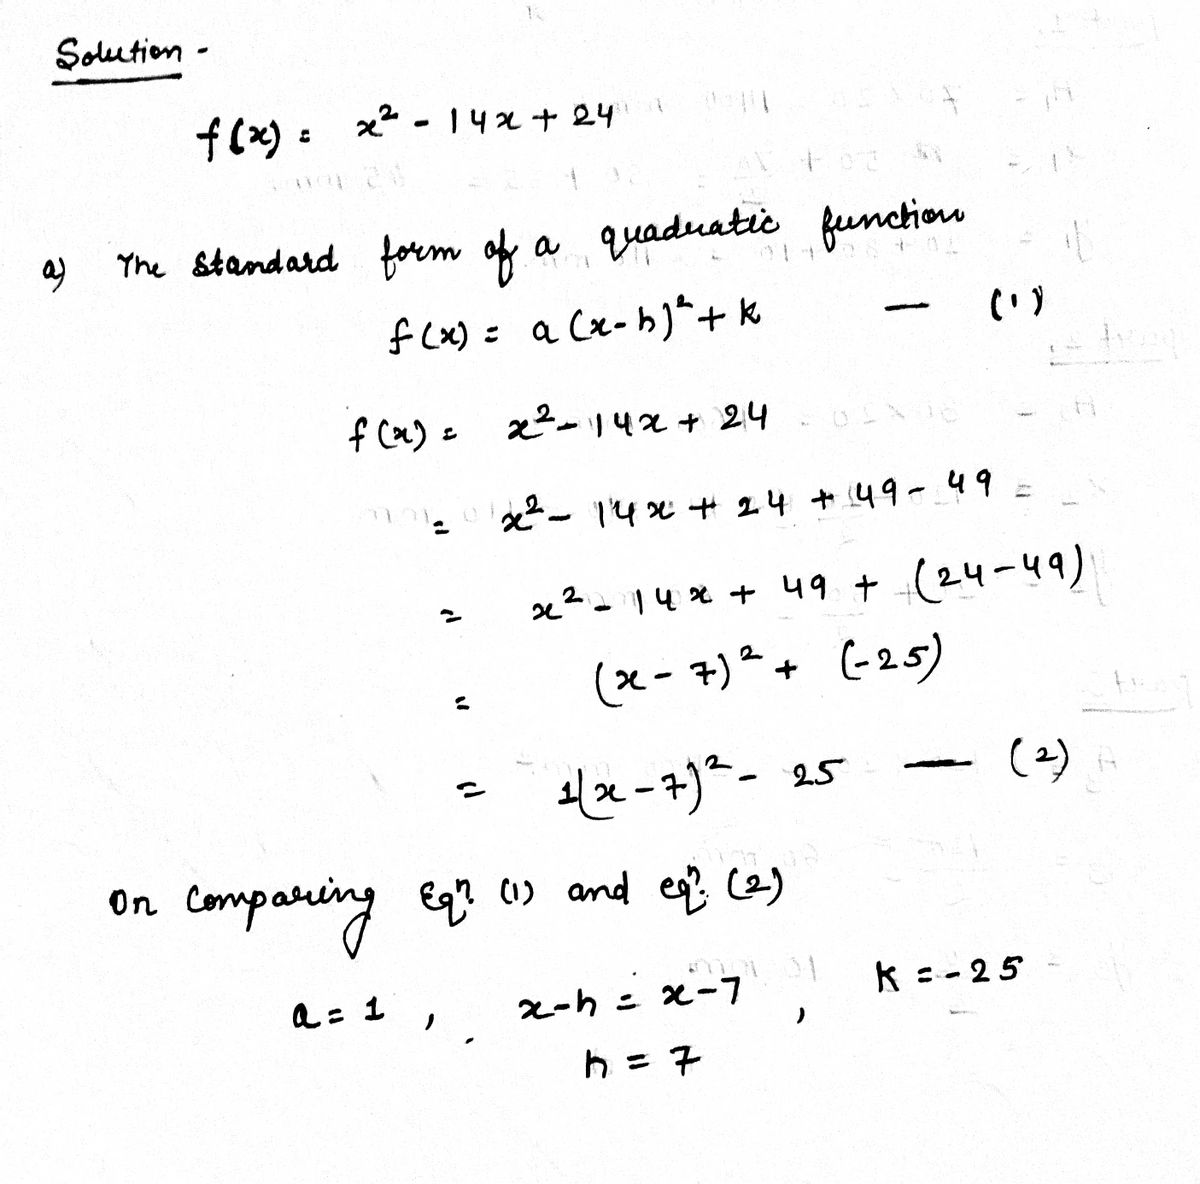 Solution -
f(x) = x² - 14x + 24
a) The standard form of a quadratic function
f(x) = a(x-h)² + k — (1)
f(x) = x² - 14x + 24
= x² - 14x + 24 + 49 - 49
= x² - 14x + 49 + (24-49)
= (x-7)² + (-25)
= 1(x-7)² - 25 — (2)
On Comparing Eqⁿ. (1) and eqⁿ. (2)
a = 1 , x-h = x-7 , k = -25
h = 7